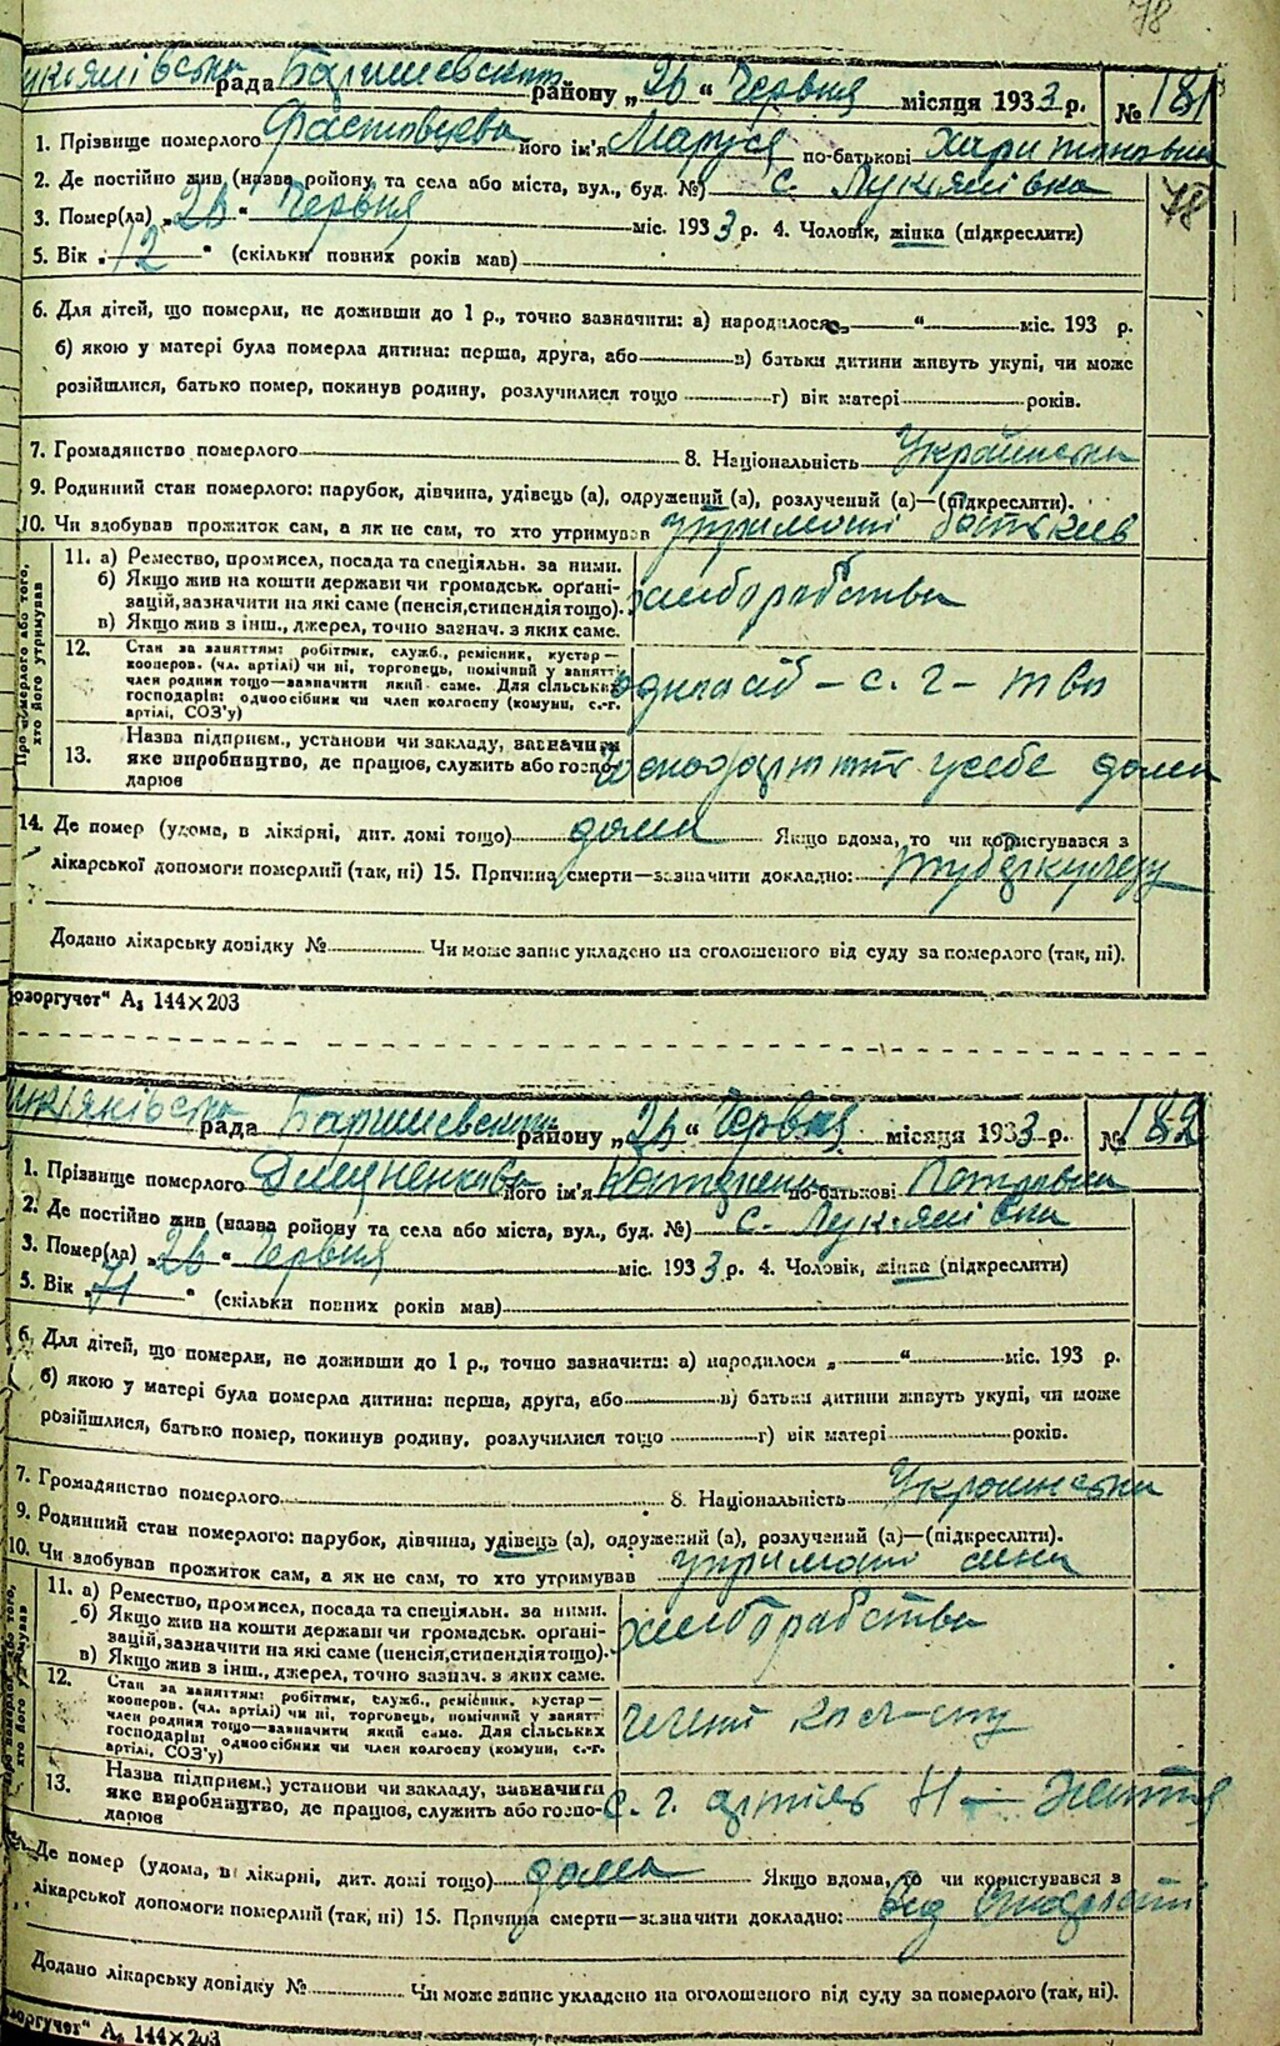 78
рада Баришевськ району „26“ Червня місяця 1933 р. № 181
1. Прізвище померлого Фастовцева його ім'я Маруся по-батькові Харитоновна
2. Де постійно жив (назва ройону та села або міста, вул., буд. №) с. Лукянівка
78
3. Помер(ла) „26“ Червня міс. 1933 р. 4. Чоловік, жінка (підкреслити)
5. Вік „12“ (скільки повних років мав)
6. Для дітей, що померли, не доживши до 1 р., точно зазначити: а) народилося „ “ міс. 193 р.
б) якою у матері була померла дитина: перша, друга, або в) батьки дитини живуть укупі, чи може
розійшлися, батько помер, покинув родину, розлучилися тощо г) вік матері років.
7. Громадянство померлого 8. Національність Украинська
9. Родинний стан померлого: парубок, дівчина, удівець (а), одружений (а), розлучений (а)—(підкреслити).
10. Чи здобував прожиток сам, а як не сам, то хто утримував утримані батьків
Про померлого або того, хто його утримував
11. а) Ремество, промисел, посада та спеціяльн. за ними.
б) Якщо жив на кошти держави чи громадськ. орґані-
зацій, зазначити на які саме (пенсія, стипендія тощо). хлеборабства
в) Якщо жив з інш., джерел, точно зазнач. з яких саме.
12. Стан за заняттям: робітник, служб., ремісник, кустар—
кооперов. (чл. артілі) чи ні, торговець, помічний у занятті
член родини тощо—зазначити який саме. Для сільських
господарів: одноосібник чи член колгоспу (комуни, с.-г.
артілі, СОЗ'у)
одноосіб – с. г – тва
13. Назва підприєм., установи чи закладу, зазначити
яке виробництво, де працює, служить або госпо-
дарює
у себе дома
14. Де помер (удома, в лікарні, дит. домі тощо) дома Якщо вдома, то чи користувався з
лікарської допомоги померлий (так, ні) 15. Причина смерти—зазначити докладно: туберкульозу
Додано лікарську довідку № Чи може запис укладено на оголошеного від суду за померлого (так, ні).
юзоргучет“ А₅ 144×203
рада Баришевськ району „26“ Червня місяця 1933 р. № 182
1. Прізвище померлого його ім'я Катерена по-батькові Петровна
2. Де постійно жив (назва ройону та села або міста, вул., буд. №) с. Лукянівка
3. Помер(ла) „26“ Червня міс. 1933 р. 4. Чоловік, жінка (підкреслити)
5. Вік „71“ (скільки повних років мав)
6. Для дітей, що померли, не доживши до 1 р., точно зазначити: а) народилося „ “ міс. 193 р.
б) якою у матері була померла дитина: перша, друга, або в) батьки дитини живуть укупі, чи може
розійшлися, батько помер, покинув родину, розлучилися тощо г) вік матері років.
7. Громадянство померлого 8. Національність Украинська
9. Родинний стан померлого: парубок, дівчина, удівець (а), одружений (а), розлучений (а)—(підкреслити).
10. Чи здобував прожиток сам, а як не сам, то хто утримував утримані сина
Про померлого або того, хто його утримував
11. а) Ремество, промисел, посада та спеціяльн. за ними.
б) Якщо жив на кошти держави чи громадськ. орґані-
зацій, зазначити на які саме (пенсія, стипендія тощо). хлеборабства
в) Якщо жив з інш., джерел, точно зазнач. з яких саме.
12. Стан за заняттям: робітник, служб., ремісник, кустар—
кооперов. (чл. артілі) чи ні, торговець, помічний у занятті
член родини тощо—зазначити який саме. Для сільських
господарів: одноосібник чи член колгоспу (комуни, с.-г.
артілі, СОЗ'у)
13. Назва підприєм., установи чи закладу, зазначити
яке виробництво, де працює, служить або госпо-
дарює
с. г. артіль Н – Життя
Де помер (удома, в лікарні, дит. домі тощо) дома Якщо вдома, то чи користувався з
лікарської допомоги померлий (так, ні) 15. Причина смерти—зазначити докладно: від старасти
Додано лікарську довідку № Чи може запис укладено на оголошеного від суду за померлого (так, ні).
юзоргучет“ А₅ 144×203